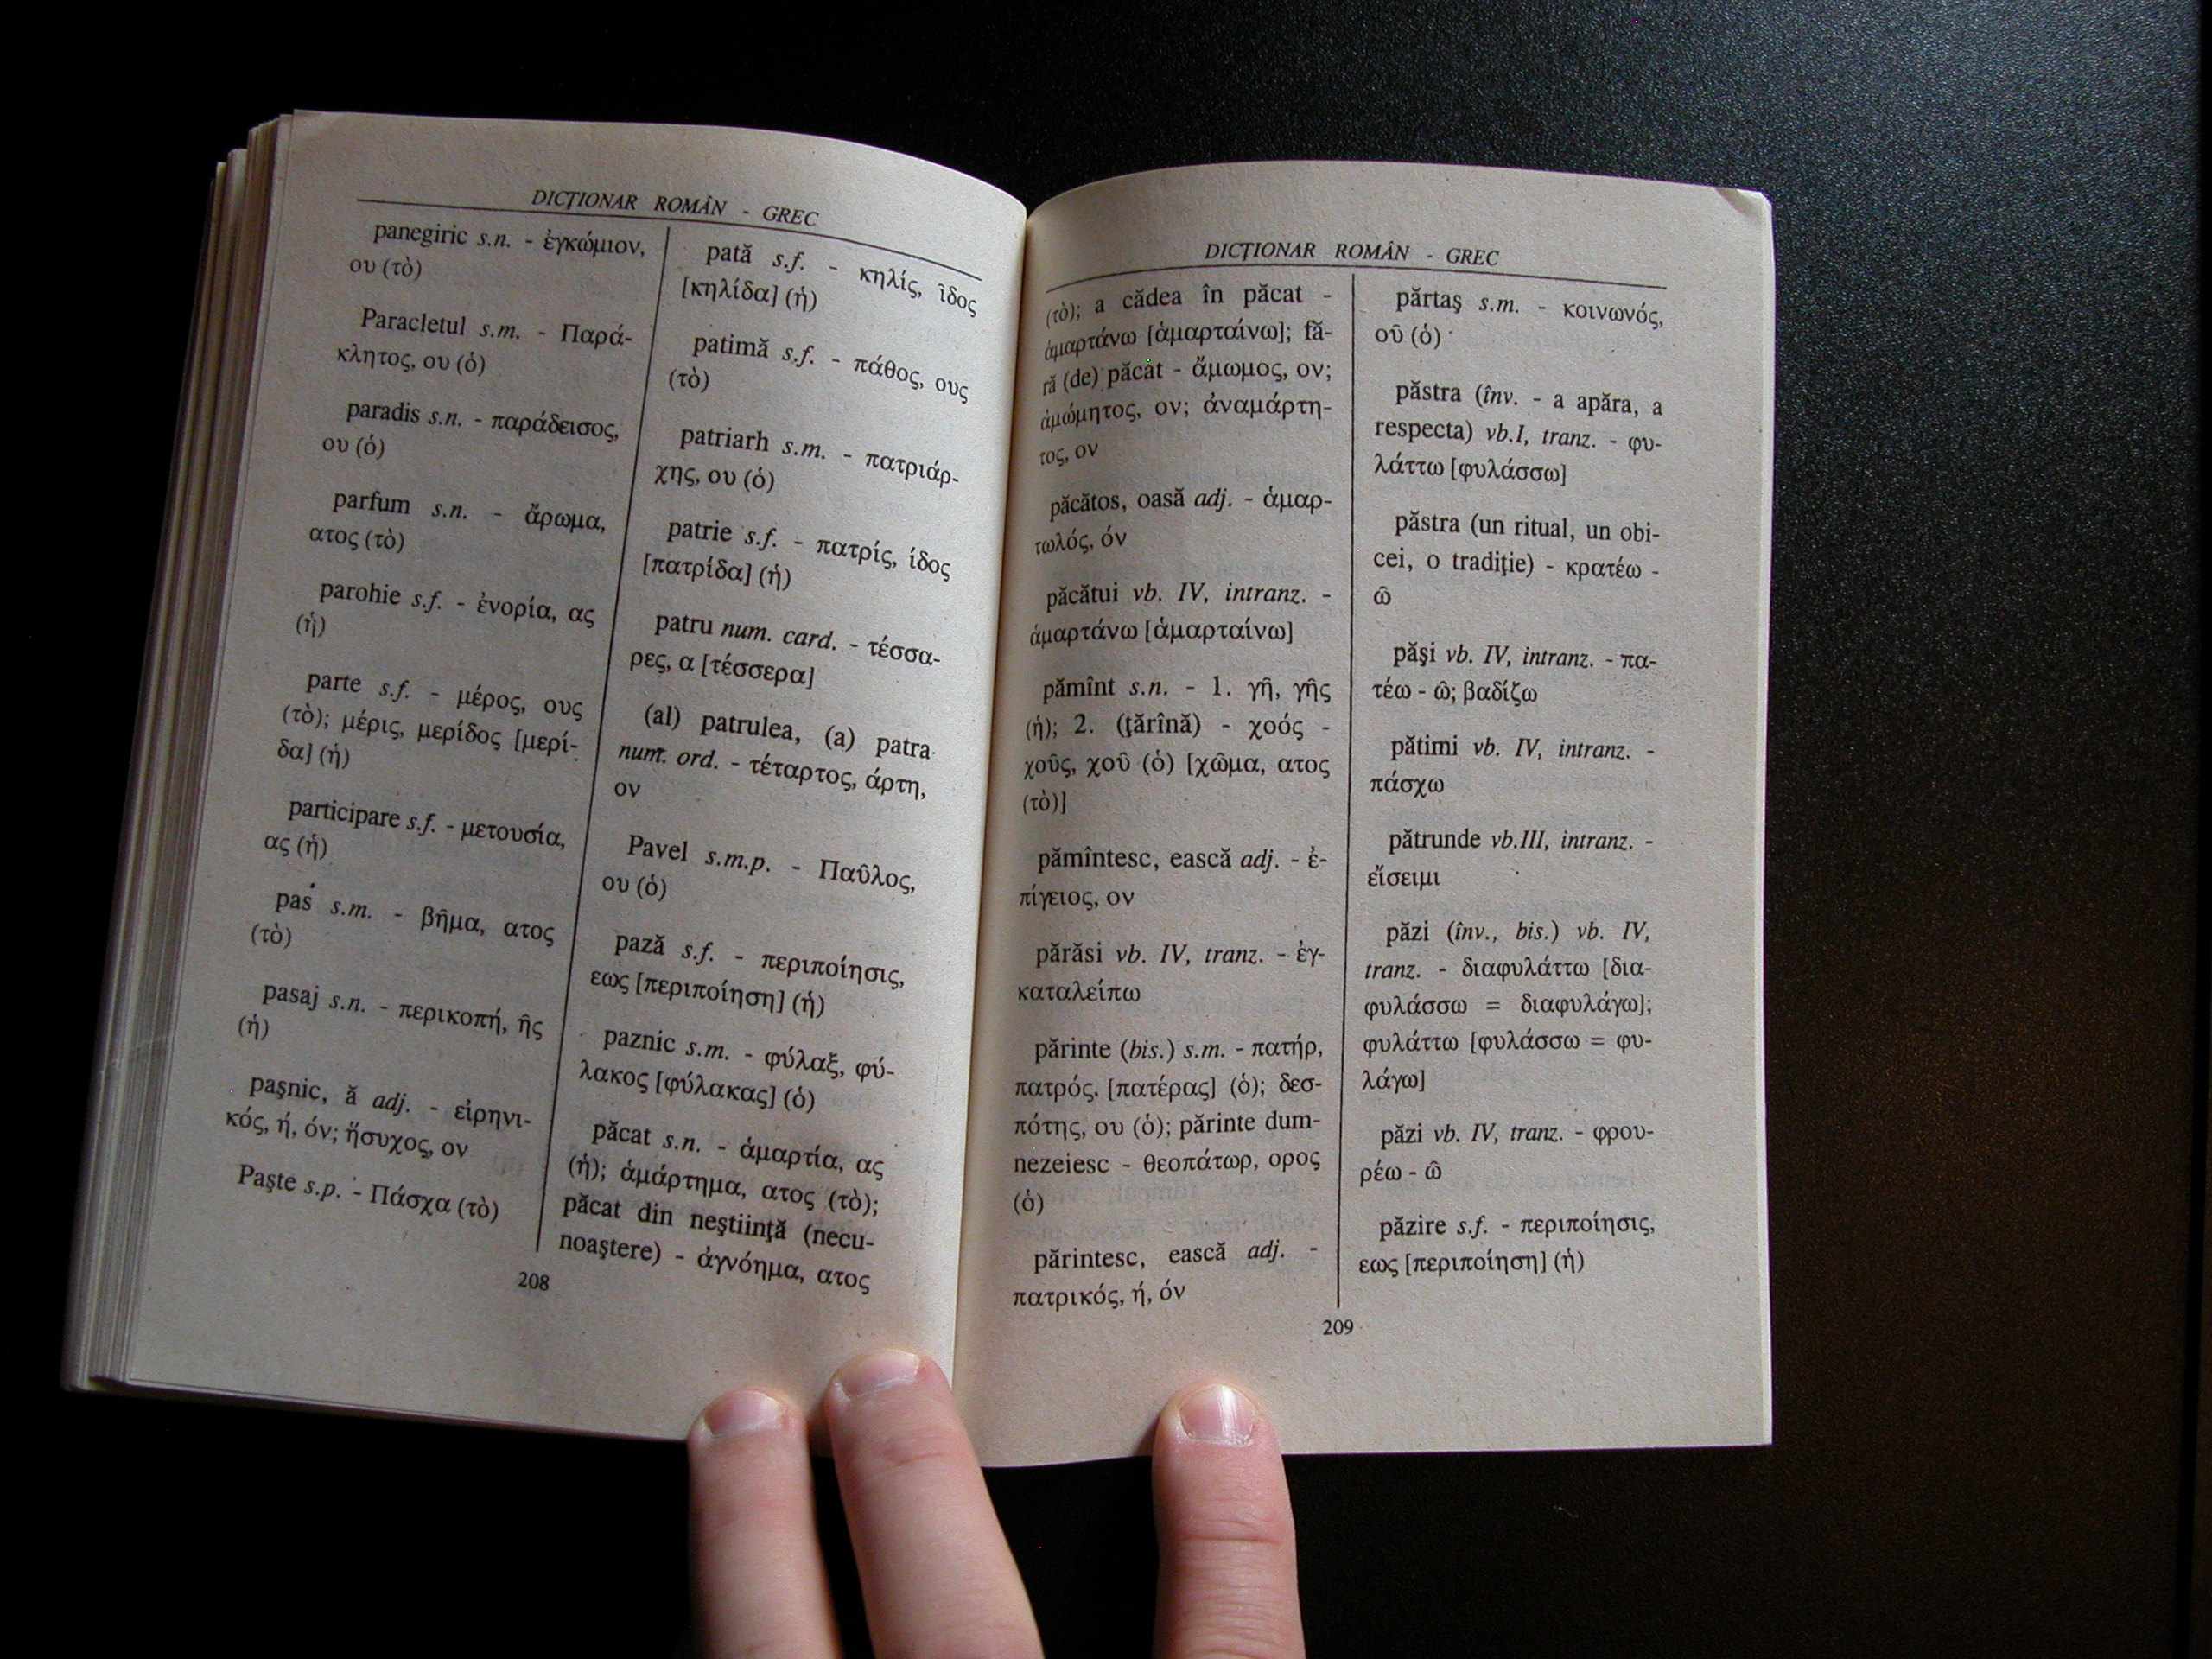 DICŢIONAR ROMÂN - GREC
panegiric s.n. - ἐγκώμιον,
ου (τὸ)
Paracletul s.m. - Παρά-
κλητος, ου (ὁ)
paradis s.n. - παράδεισος,
ου (ὁ)
parfum s.n. - ἄρωμα,
ατος (τὸ)
parohie s.f. - ἐνορία, ας
(ἡ)
parte s.f. - μέρος, ους
(τὸ); μέρις, μερίδος [μερί-
δα] (ἡ)
participare s.f. - μετουσία,
ας (ἡ)
pas s.m. - βῆμα, ατος
(τὸ)
pasaj s.n. - περικοπή, ῆς
(ἡ)
paşnic, ă adj. - εἰρηνι-
κός, ή, όν; ἥσυχος, ον
Paşte s.p. - Πάσχα (τὸ)
pată s.f. - κηλίς, ῖδος
[κηλίδα] (ἡ)
patimă s.f. - πάθος, ους
(τὸ)
patriarh s.m. - πατριάρ-
χης, ου (ὁ)
patrie s.f. - πατρίς, ίδος
[πατρίδα] (ἡ)
patru num. card. - τέσσα-
ρες, α [τέσσερα]
(al) patrulea, (a) patra
num. ord. - τέταρτος, άρτη,
ον
Pavel s.m.p. - Παῦλος,
ου (ὁ)
pază s.f. - περιποίησις,
εως [περιποίηση] (ἡ)
paznic s.m. - φύλαξ, φύ-
λακος [φύλακας] (ὁ)
păcat s.n. - ἁμαρτία, ας
(ἡ); ἁμάρτημα, ατος (τὸ);
păcat din neştiinţă (necu-
noaştere) - ἀγνόημα, ατος
208
DICŢIONAR ROMÂN - GREC
(τὸ); a cădea în păcat -
ἁμαρτάνω [ἁμαρταίνω]; fă-
ră (de) păcat - ἄμωμος, ον;
ἀμώμητος, ον; ἀναμάρτη-
τος, ον
păcătos, oasă adj. - ἁμαρ-
τωλός, όν
păcătui vb. IV, intranz. -
ἁμαρτάνω [ἁμαρταίνω]
pămînt s.n. - 1. γῆ, γῆς
(ἡ); 2. (ţărînă) - χοός -
χοῦς, χοῦ (ὁ) [χῶμα, ατος
(τὸ)]
pămîntesc, ească adj. - ἐ-
πίγειος, ον
părăsi vb. IV, tranz. - ἐγ-
καταλείπω
părinte (bis.) s.m. - πατήρ,
πατρός, [πατέρας] (ὁ); δεσ-
πότης, ου (ὁ); părinte dum-
nezeiesc - θεοπάτωρ, ορος
(ὁ)
părintesc, ească adj. -
πατρικός, ή, όν
părtaş s.m. - κοινωνός,
οῦ (ὁ)
păstra (înv. - a apăra, a
respecta) vb.I, tranz. - φυ-
λάττω [φυλάσσω]
păstra (un ritual, un obi-
cei, o tradiţie) - κρατέω -
ῶ
păşi vb. IV, intranz. - πα-
τέω - ῶ; βαδίζω
pătimi vb. IV, intranz. -
πάσχω
pătrunde vb.III, intranz. -
εἴσειμι
păzi (înv., bis.) vb. IV,
tranz. - διαφυλάττω [δια-
φυλάσσω = διαφυλάγω];
φυλάττω [φυλάσσω = φυ-
λάγω]
păzi vb. IV, tranz. - φρου-
ρέω - ῶ
păzire s.f. - περιποίησις,
εως [περιποίηση] (ἡ)
209